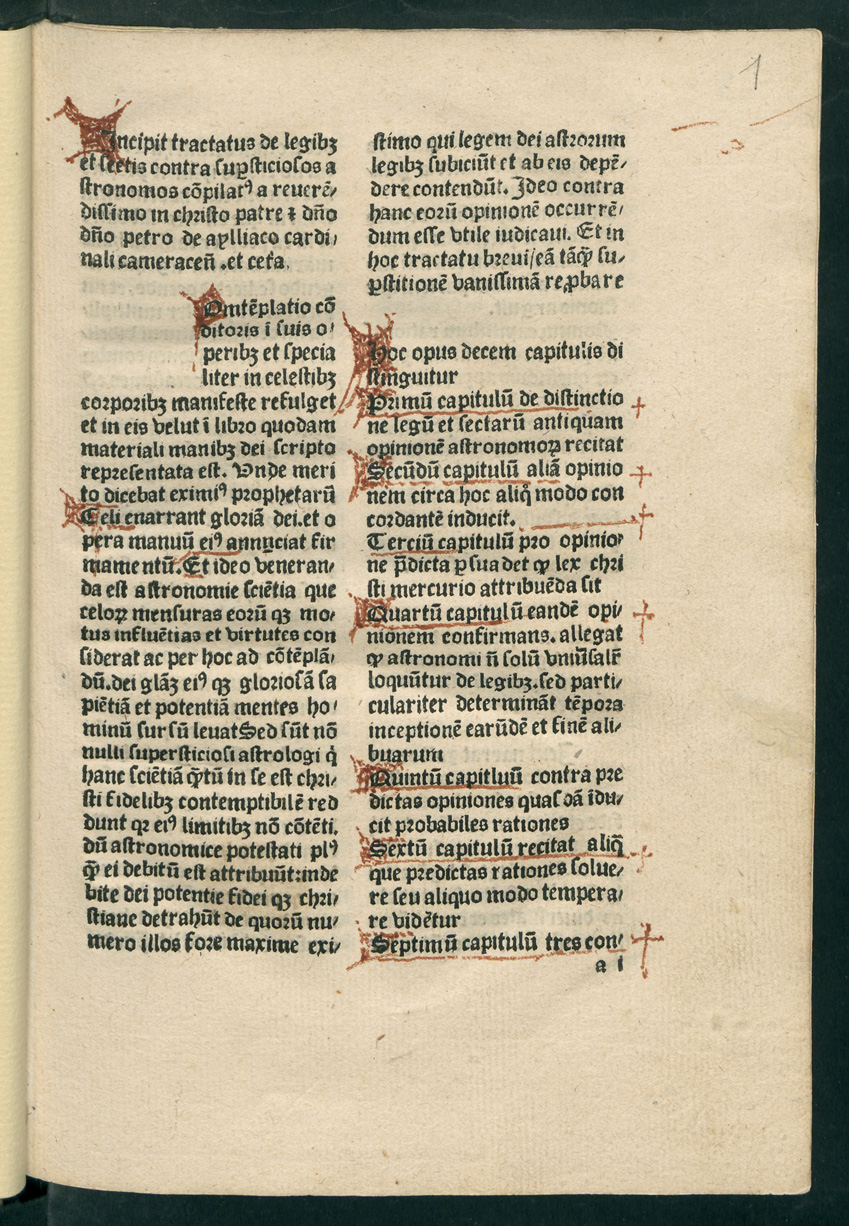 1
Incipit tractatus de legibꝫ
et sectis contra suꝑsticiosos a
stronomos cōpilatꝰ a reuerē/
dissimo in christo patre ⁊ dn̄o
dn̄o petro de aylliaco cardi/
nali cameraceñ .et ceta.
Contēplatio cō
ditoris ī suis o/
peribꝫ et specia
liter in celestibꝫ
corporibꝫ manifeste refulget
et in eis velut ī libro quodam
materiali manibꝫ dei scripto
representata est. Vnde meri
to dicebat eximiꝰ prophetarū
Celi enarrant gloriā dei.et o
pera manuū eiꝰ annūciat fir
mamentū.Et ideo veneran/
da est astronomie sciētia que
celoꝝ mensuras eorū qꝫ mo/
tus influētias et virtutes con
siderat ac per hoc ad cōtēplā/
dū.dei glāꝫ eiꝰ qꝫ gloriosā sa
piētiā et potentiā mentes ho/
minū sursū leuatSed sūt nō
nulli supersticiosi astrologi q̇
hanc sciētiā qͣ̄tū in se est chri/
sti fidelibꝫ contemptibilē red
dunt qꝛ eiꝰ limitibꝫ nō cōtēti.
dū astronomice potestati plꝰ
qͣ̄ ei debitū est attribuūt:inde
bite dei potentie fidei qꝫ chri/
stiane detrahūt de quorū nu/
mero illos fore maxime exi/
stimo qui legem dei astrorum
legibꝫ subiciūt et ab eis depē/
dere contendūt. Ideo contra
hanc eorū opinionē occurrē/
dum esse vtile iudicaui. Et in
hoc tractatu breui/eā tāqͣ̄ su/
ꝑstitionē vanissimā reꝓbare
Hoc opus decem capitulis di
stinguitur
Primū capitulū de distinctio
ne legū et sectarū antiquam
opinionē astronomoꝝ recitat
Secūdū capitulū aliā opinio
nem circa hoc aliq̄ modo con
cordantē inducit.
Terciū capitulū pro opinio/
ne p̄dicta ꝑsuadet ꝙ lex chri
sti mercurio attribuēda sit
Quartū capitulū eandē opi/
nionem confirmans. allegat
ꝙ astronomi n̄ solū vniūsalr̄
loquūtur de legibꝫ.sed parti/
culariter determināt tēpora
inceptionē earūdē et finē ali/
quarum
Quintū capitluū contra pre
dictas opiniones quasdā īdu/
cit probabiles rationes
Sextū capitulū recitat aliq̄
que predictas rationes solue/
re seu aliquo modo tempera/
re vidētur
Septimū capitulū tres con/
a i